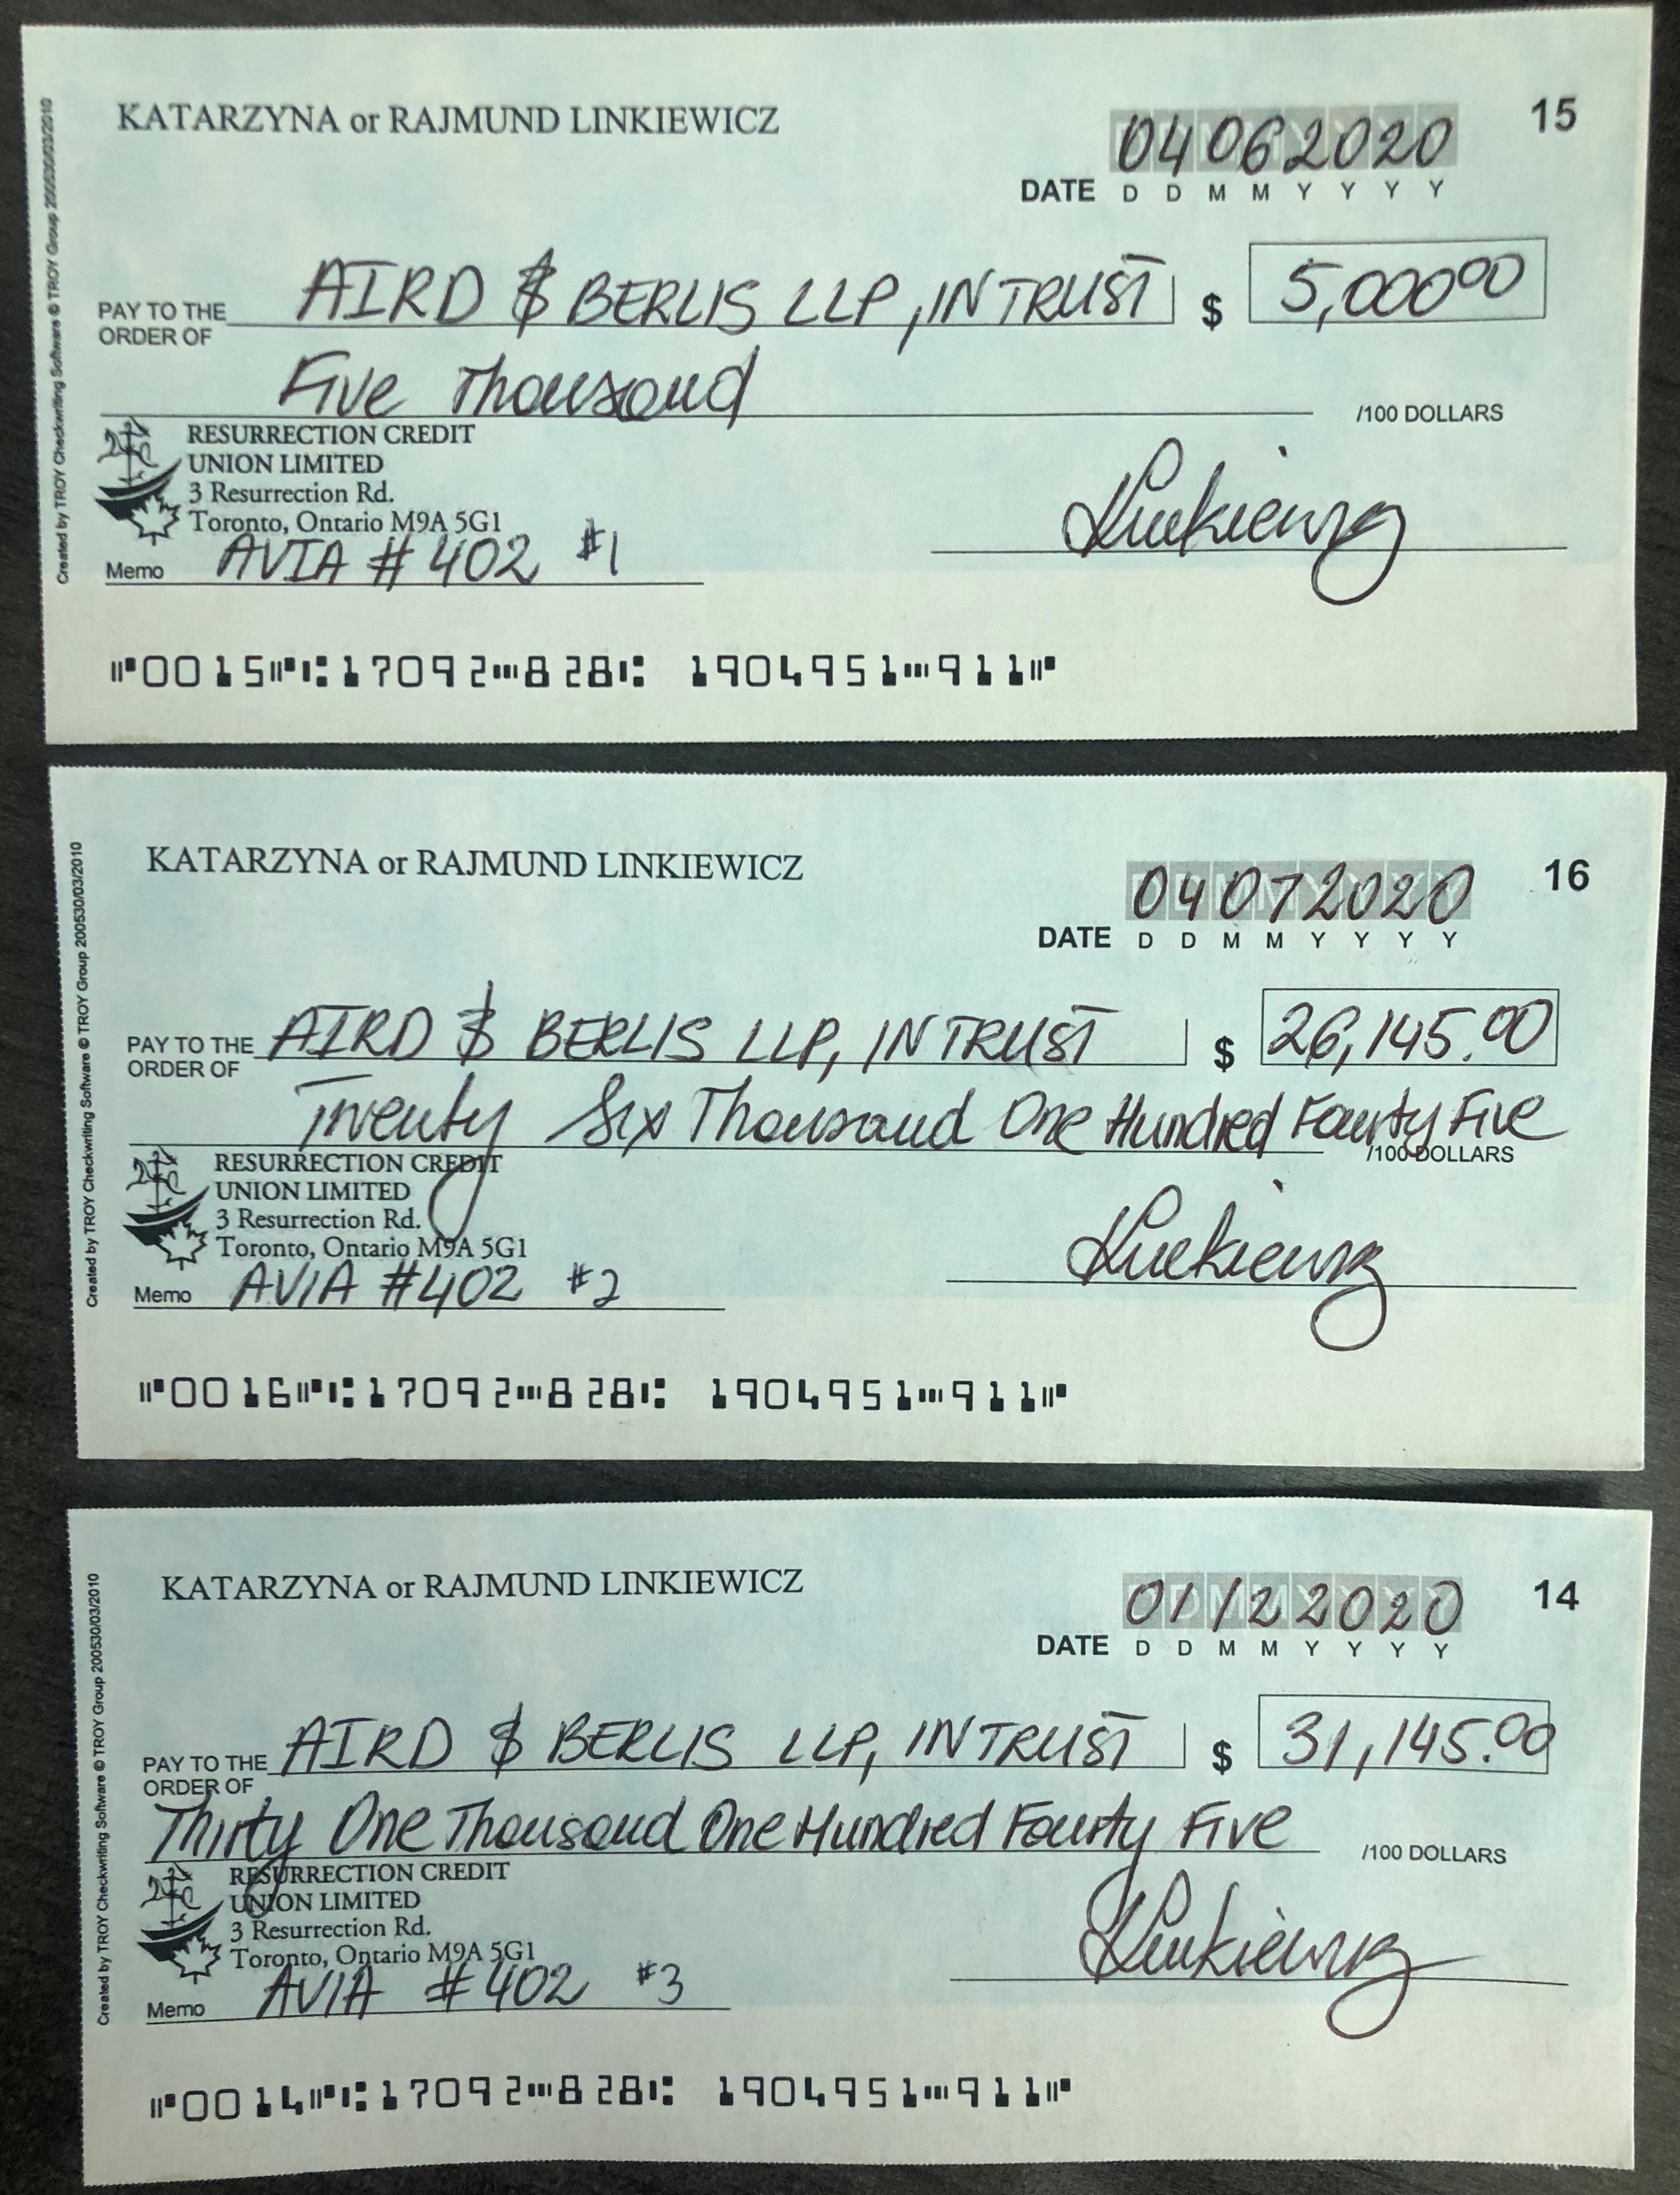 KATARZYNA or RAJMUND LINKIEWICZ
15
04062020
DATE D D M M Y Y Y Y
PAY TO THE ORDER OF AIRD & BERLIS LLP, IN TRUST $ 5,000 00
Five Thousand /100 DOLLARS
RESURRECTION CREDIT
UNION LIMITED
3 Resurrection Rd.
Toronto, Ontario M9A 5G1
Memo AVIA # 402 #1
Linkiewicz
⑈0015⑈⑆17092⑉828⑆ 1904951⑉911⑈
Created by TROY Checkwriting Software © TROY Group 200530/03/2010
KATARZYNA or RAJMUND LINKIEWICZ
16
04072020
DATE D D M M Y Y Y Y
PAY TO THE ORDER OF AIRD & BERLIS LLP, IN TRUST $ 26,145.00
Twenty Six Thousand One Hundred Fourty Five /100 DOLLARS
RESURRECTION CREDIT
UNION LIMITED
3 Resurrection Rd.
Toronto, Ontario M9A 5G1
Memo AVIA #402 #2
Linkiewicz
⑈0016⑈⑆17092⑉828⑆ 1904951⑉911⑈
Created by TROY Checkwriting Software © TROY Group 200530/03/2010
KATARZYNA or RAJMUND LINKIEWICZ
14
01122020
DATE D D M M Y Y Y Y
PAY TO THE ORDER OF AIRD & BERLIS LLP, IN TRUST $ 31,145.00
Thirty One Thousand One Hundred Fourty Five /100 DOLLARS
RESURRECTION CREDIT
UNION LIMITED
3 Resurrection Rd.
Toronto, Ontario M9A 5G1
Memo AVIA #402 #3
Linkiewicz
⑈0014⑈⑆17092⑉828⑆ 1904951⑉911⑈
Created by TROY Checkwriting Software © TROY Group 200530/03/2010